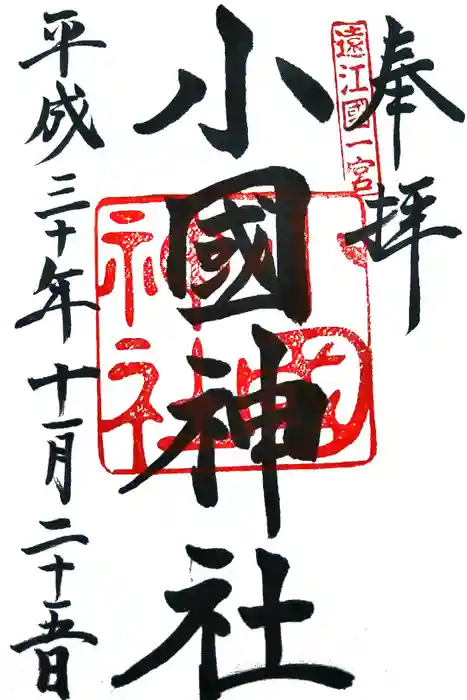 奉拝
遠江國一宮
小國神社
小國神社
平成三十年十一月二十五日